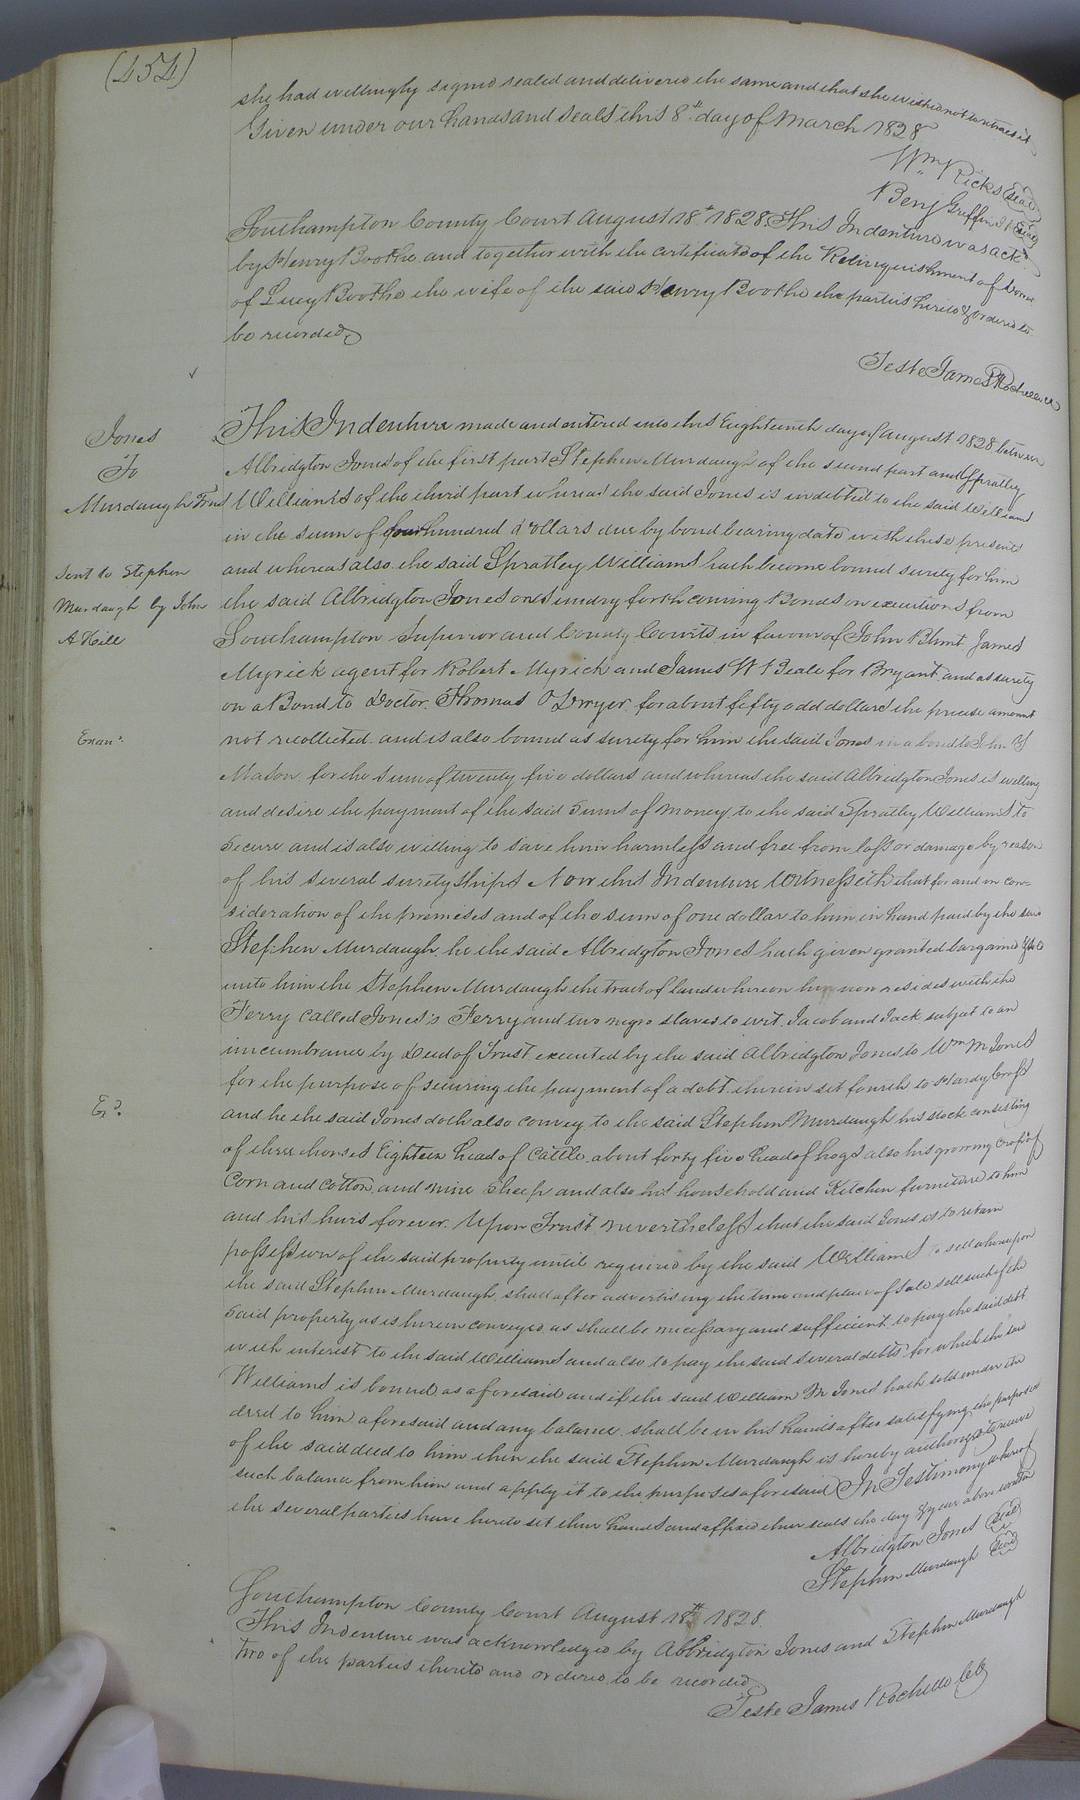 (454)
she had willingly signed sealed and delivered the same and that she wished not to retract it
Given under our hands and seals this 8th day of March 1828
Wm Ricks Seal
Benj Griffin Seal
Southampton County Court August 18th 1828. This Indenture was ack
by Henry Boothe and together with the certificate of the Relinquishment of Dower
of Lucy Boothe the wife of the said Henry Boothe the parties hereto & ordered to
be recorded
Teste James Rochelle
Jones
To
Murdaugh Trust
Sent to Stephen
Murdaugh by John
A Hill
Exan
Ed
This Indenture made and entered into this Eighteenth day of August 1828 between
Albridgton Jones of the first part Stephen Murdaugh of the second part and Spratley
Williams of the third part whereas the said Jones is indebted to the said Williams
in the sum of four hundred dollars due by bond bearing date with these presents
and whereas also the said Spratley Williams hath become bound surety for him
the said Albridgton Jones on Sundry forth coming Bonds on executions from
Southampton Superior and County Courts in favour of John Blunt James
Myrick agent for Robert Myrick and James W Beale for Bryant and as surety
on a Bond to Doctor Thomas O Dwyer for about fifty odd dollars the precise amount
not recollected and is also bound as surety for him the said Jones in a bond to John Y
Mason for the sum of twenty five dollars and whereas the said Albridgton Jones is willing
and desire the payment of the said sums of money to the said Spratley Williams to
secure and is also willing to save him harmless and free from loss or damage by reason
of his several surety ships Now this Indenture Witnesseth that for and in con-
sideration of the premises and of the sum of one dollar to him in hand paid by the said
Stephen Murdaugh he the said Albridgton Jones hath given granted bargained & sold
unto him the Stephen Murdaugh the tract of land whereon he now resides with the
Ferry called Jones's Ferry and two negro slaves to wit Jacob and Jack subject to an
incumbrance by Deed of Trust executed by the said Albridgton Jones to Wm M Jones
for the purpose of securing the payment of a debt therein set fourth to Hardy Cross
and he the said Jones doth also convey to the said Stephen Murdaugh his stock consisting
of three horses Eighteen head of Cattle about forty five head of hogs also his growing crops of
Corn and Cotton and nine sheep and also his household and Kitchen furniture to him
and his heirs forever. Upon Trust nevertheless that the said Jones is to retain
possession of the said property until required by the said Williams to sell whereupon
the said Stephen Murdaugh shall after advertising the time and place of sale sell such of the
said property as is herein conveyed as shall be necessary and sufficient to pay the said debt
with interest to the said Williams and also to pay the said several debts for which the said
Williams is bound as aforesaid and if the said William M Jones hath sold under the
deed to him aforesaid and any balance shall be in his hands after satisfying the purposes
of the said deed to him then the said Stephen Murdaugh is hereby authorized to receive
such balance from him and apply it to the purposes aforesaid In Testimony whereof
the several parties have hereto set their hands and affixed their seals the day & year above written
Albridgton Jones Seal
Stephen Murdaugh Seal
Southampton County Court August 18th 1828.
This Indenture was acknowledged by Albridgton Jones and Stephen Murdaugh
two of the parties thereto and ordered to be recorded
Teste James Rochelle Clk